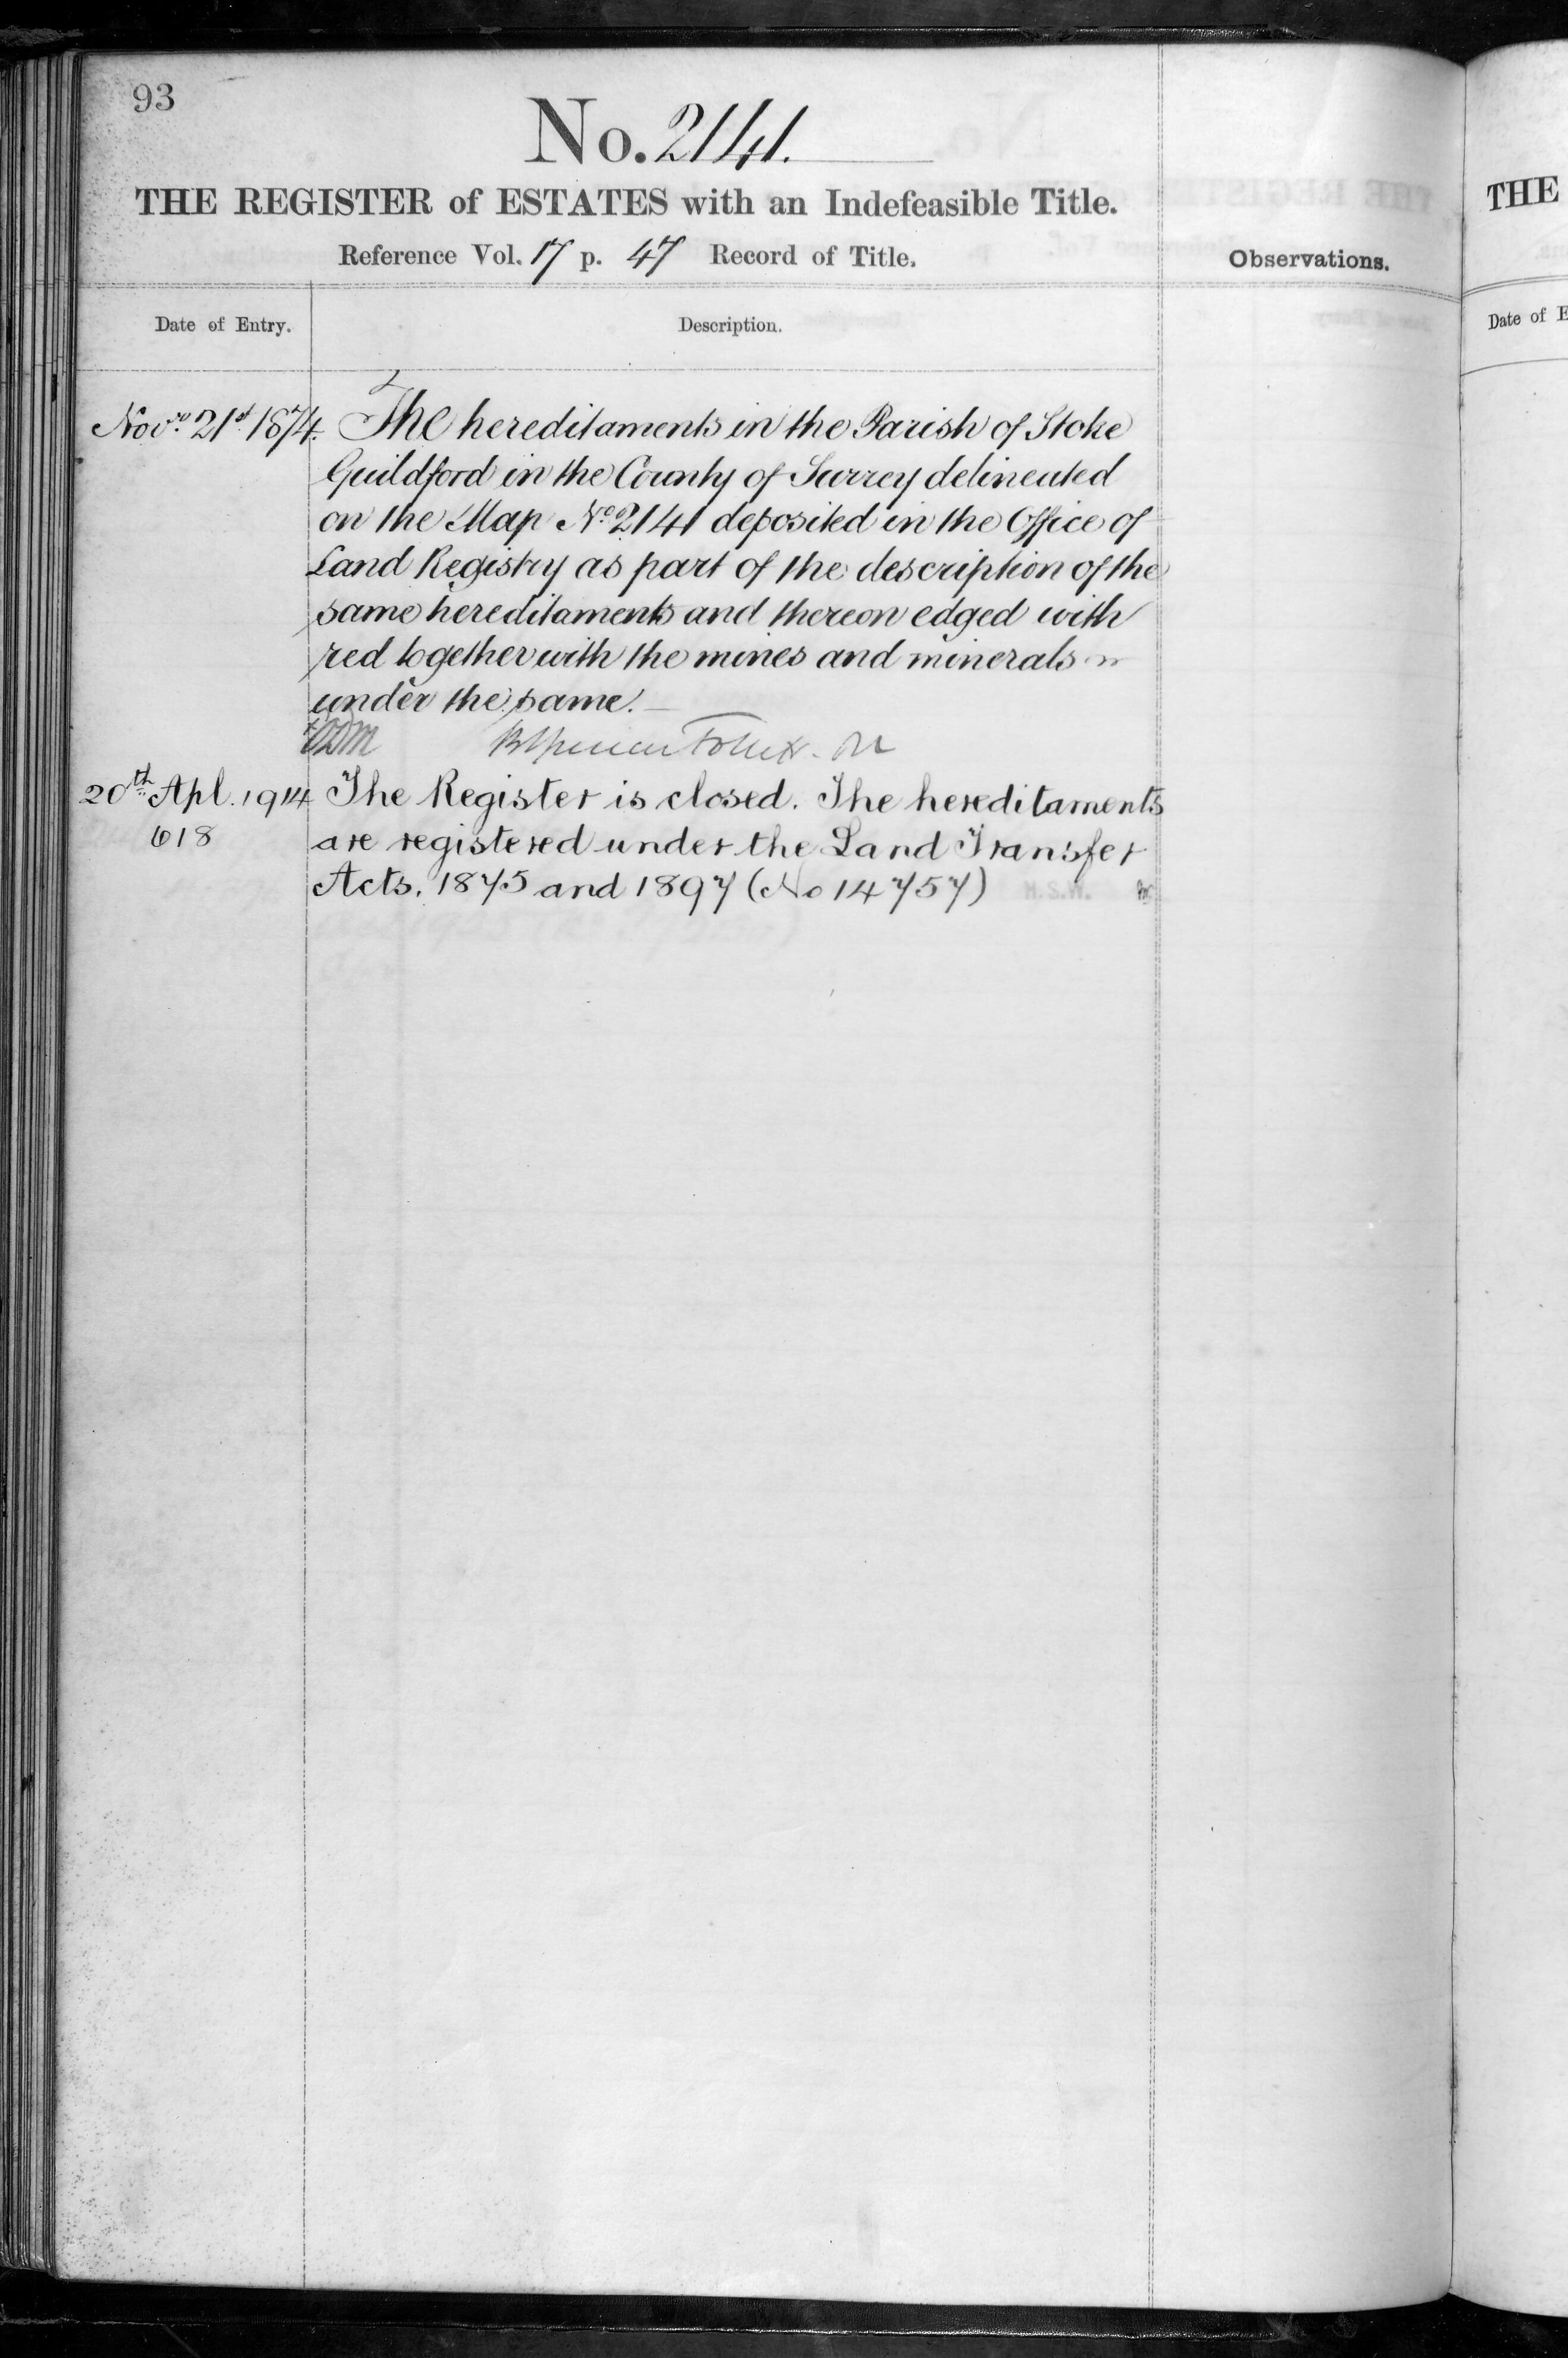 93
No. 2141.
THE REGISTER of ESTATES with an Indefeasible Title.
Reference Vol. 17 p. 47 Record of Title.
Observations.
Date of Entry.
Description.
Nov.re 21st 1874. The hereditaments in the Parish of Stoke
Guildford in the County of Surrey delineated
on the Map No. 2141 deposited in the Office of
Land Registry as part of the description of the
same hereditaments and thereon edged with
red together with the mines and minerals
under the same.
20th Apl. 1914 The Register is closed. The hereditaments
618 are registered under the Land Transfer
Acts, 1875 and 1897 (No 14757) H.S.W.
THE
Date of E